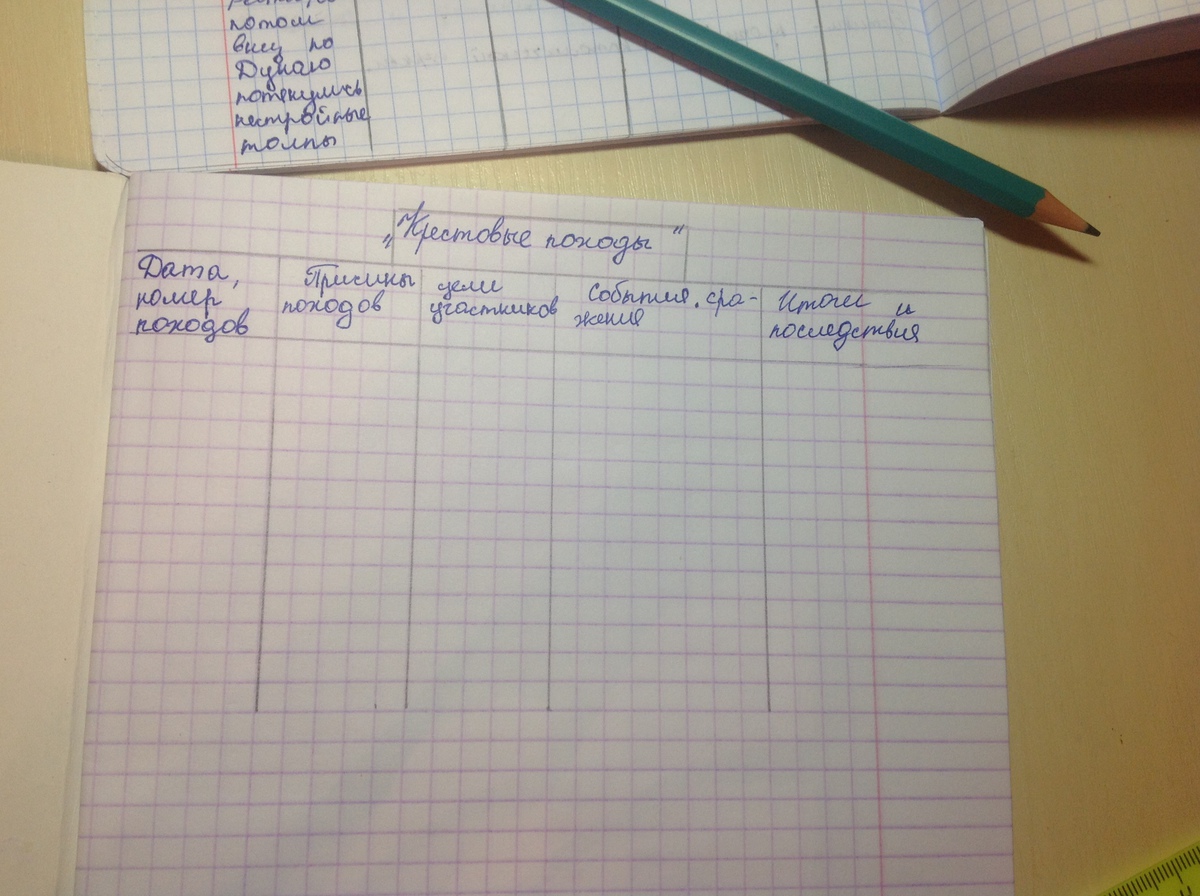 потом
вниз по
Дунаю
потянулись
нестройные
толпы
„Крестовые походы“
Дата,
номер
походов
Причины
походов
цели
участников
События, сра-
жения
Итоги и
последствия